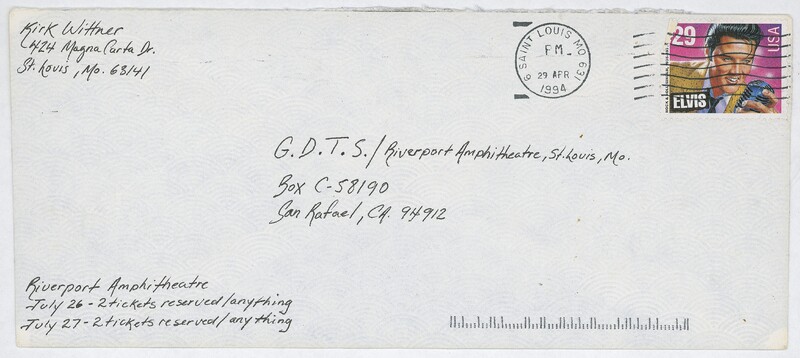 Kirk Wittner
424 Magna Carta Dr.
St. Louis, Mo. 63141
SAINT LOUIS MO 631
PM
29 APR
1994
29
USA
ELVIS
G.D.T.S./Riverport Amphitheatre, St. Louis, Mo.
Box C-58190
San Rafael, CA. 94912
Riverport Amphitheatre
July 26 - 2 tickets reserved/anything
July 27 - 2 tickets reserved/anything